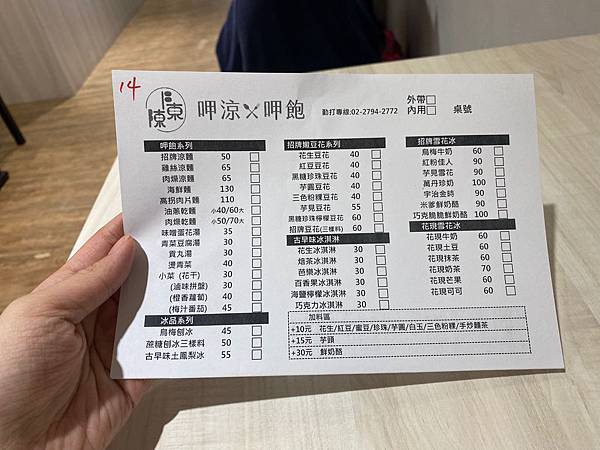 14
呷涼 呷飽
勤打專線:02-2794-2772
外帶
內用
桌號
呷飽系列
招牌涼麵 50
雞絲涼麵 65
肉燥涼麵 65
海鮮麵 130
高拐肉片麵 110
油蔥乾麵 小40/60大
肉燥乾麵 小50/70大
味噌蛋花湯 35
青菜豆腐湯 30
貢丸湯 30
燙青菜 40
小菜 (花干) 30
(滷味拼盤) 30
(橙香蘿蔔) 40
(梅汁番茄) 45
冰品系列
烏梅刨冰 45
蔗糖刨冰三樣料 50
古早味土鳳梨冰 55
招牌嫩豆花系列
花生豆花 40
紅豆豆花 40
黑糖珍珠豆花 40
芋圓豆花 40
三色粉粿豆花 40
芋見豆花 55
黑糖珍珠檸檬豆花 60
招牌豆花(三樣料) 60
古早味冰淇淋
花生冰淇淋 30
焙茶冰淇淋 30
芭樂冰淇淋 30
百香果冰淇淋 30
海鹽檸檬冰淇淋 30
巧克力冰淇淋 30
招牌雪花冰
烏梅牛奶 60
紅粉佳人 90
芋見雪花 90
萬丹珍奶 100
宇治金時 90
米爹鮮奶酪 90
巧克脆脆鮮奶酪 100
花現雪花冰
花現牛奶 60
花現土豆 60
花現抹茶 60
花現奶茶 70
花現芒果 60
花現可可 60
加料區
+10元 花生/紅豆/蜜豆/珍珠/芋圓/白玉/三色粉粿/手炒麵茶
+15元 芋頭
+30元 鮮奶酪